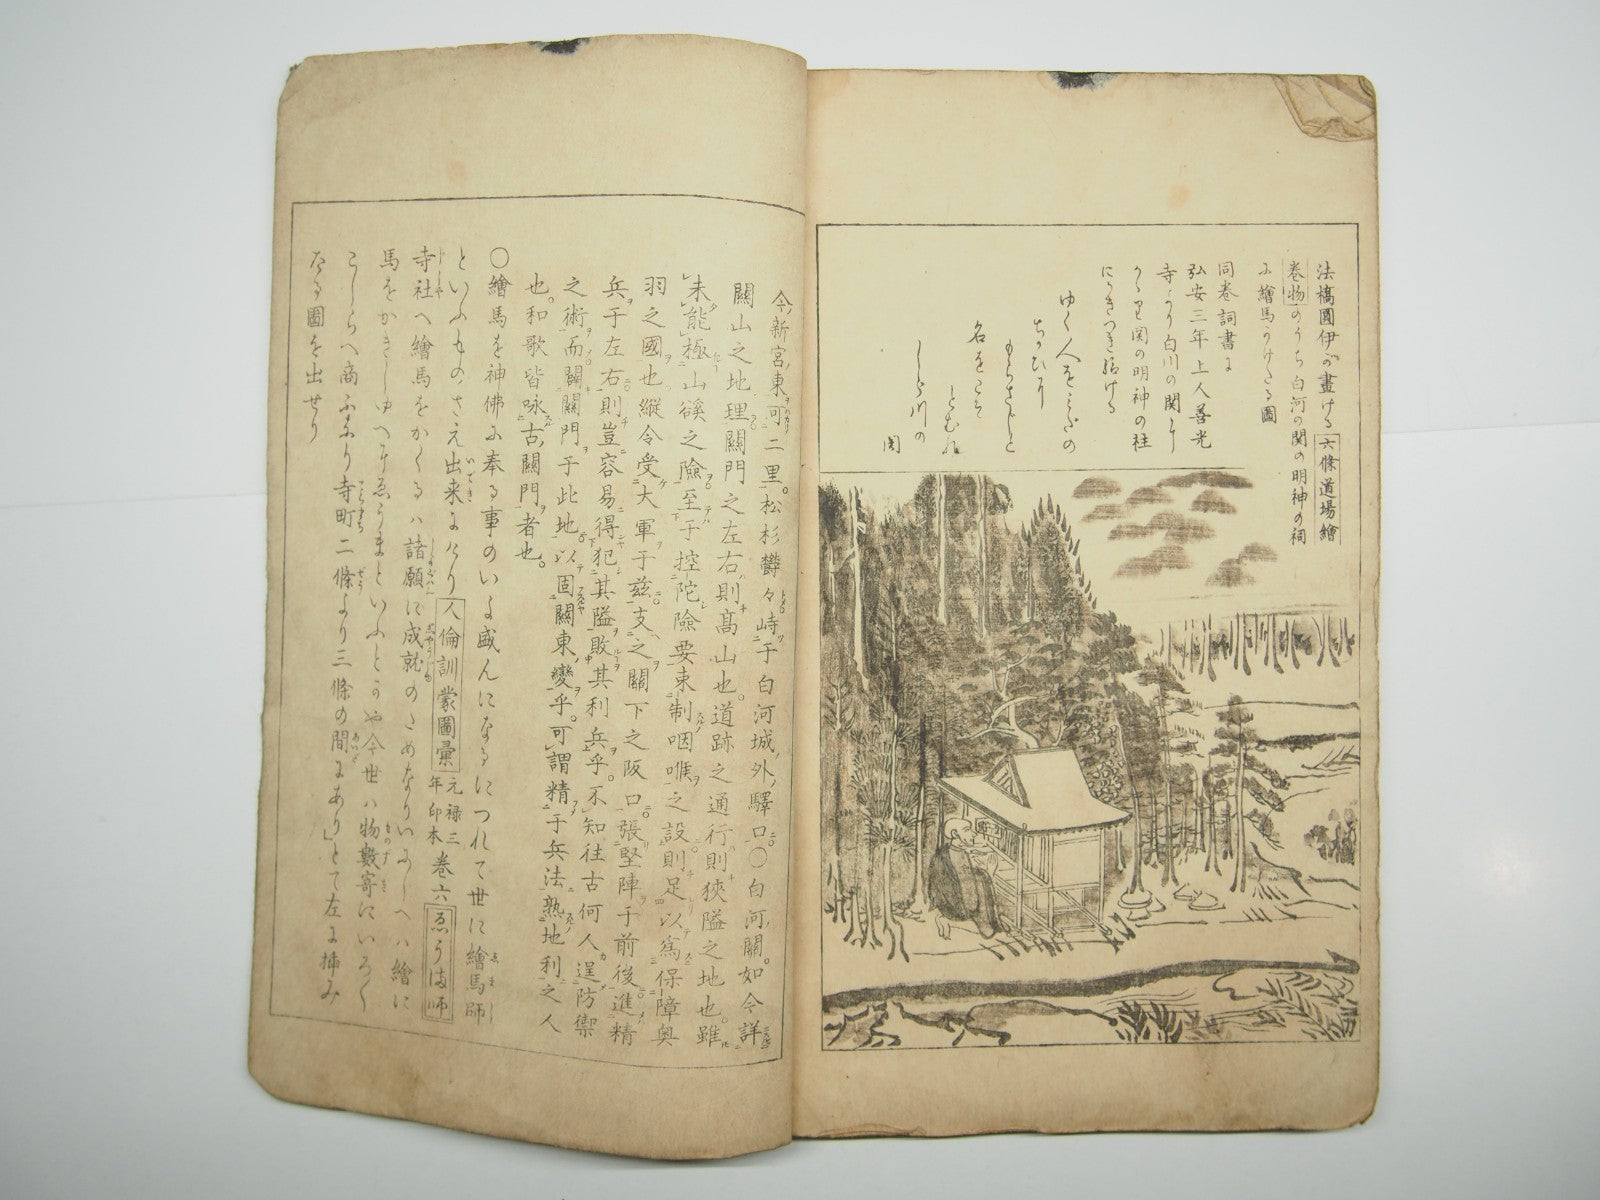 法橋圓伊が畫ける六條道場繪
巻物のうち白河の関の明神の祠
に繪馬かけたる圖
同巻詞書に
弘安三年上人善光
寺より白川の関に
かゝり関の明神の柱
にかきつけ給ける
ゆく人を
ちかひ
もらさしと
名をこそ
とむれ
しら川の
関
今新宮東可二里。松杉欝々峙于白河城外驛口〇白河關。如今詳
關山之地理關門之左右則高山也。道跡之通行則狹隘之地也。雖
未能極山谿之險至于控陀險要東制咽喉之設則足以爲保障奥
羽之國也縱令受大軍于茲支之關下之阪口張堅陣于前後進精
兵于左右則豈容易得犯其隘敗其利兵乎。不知往古何人逞防禦
之術而關關門于此地以固關東變乎。可謂精于兵法熟地利之人
也。和歌皆咏古關門者也。
〇繪馬を神佛に奉る事のいよ盛んになるにつれて世に繪馬師
といふものさえ出来にけり人倫訓蒙圖彙元禄三年印本巻六ゑうま師
寺社へ繪馬をかくるハ諸願に成就のためなりいにしへハ繪に
馬をかきしゆへにゑうまといふとかや今世ハ物數寄にいろく
こしらへ商ふなり寺町二條より三條の間にあり」とて左に挿み
たる圖を出せり